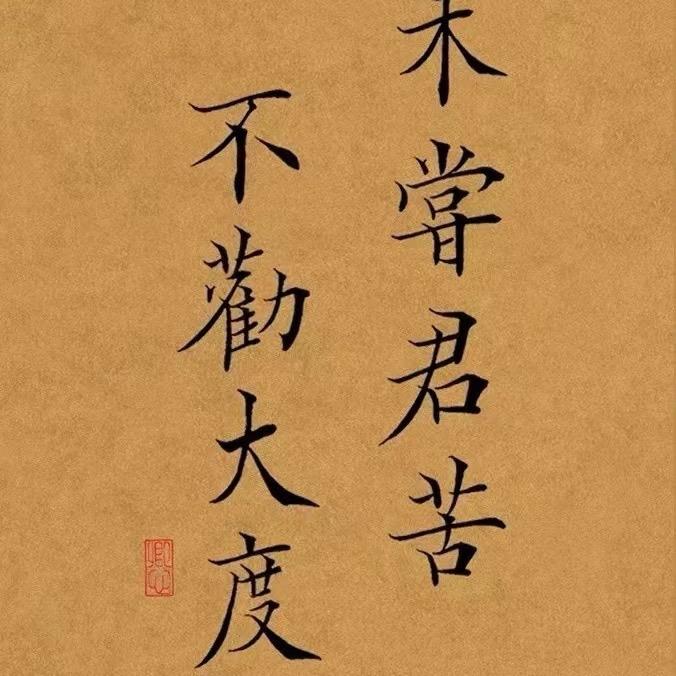 未嘗君苦
不勸大度